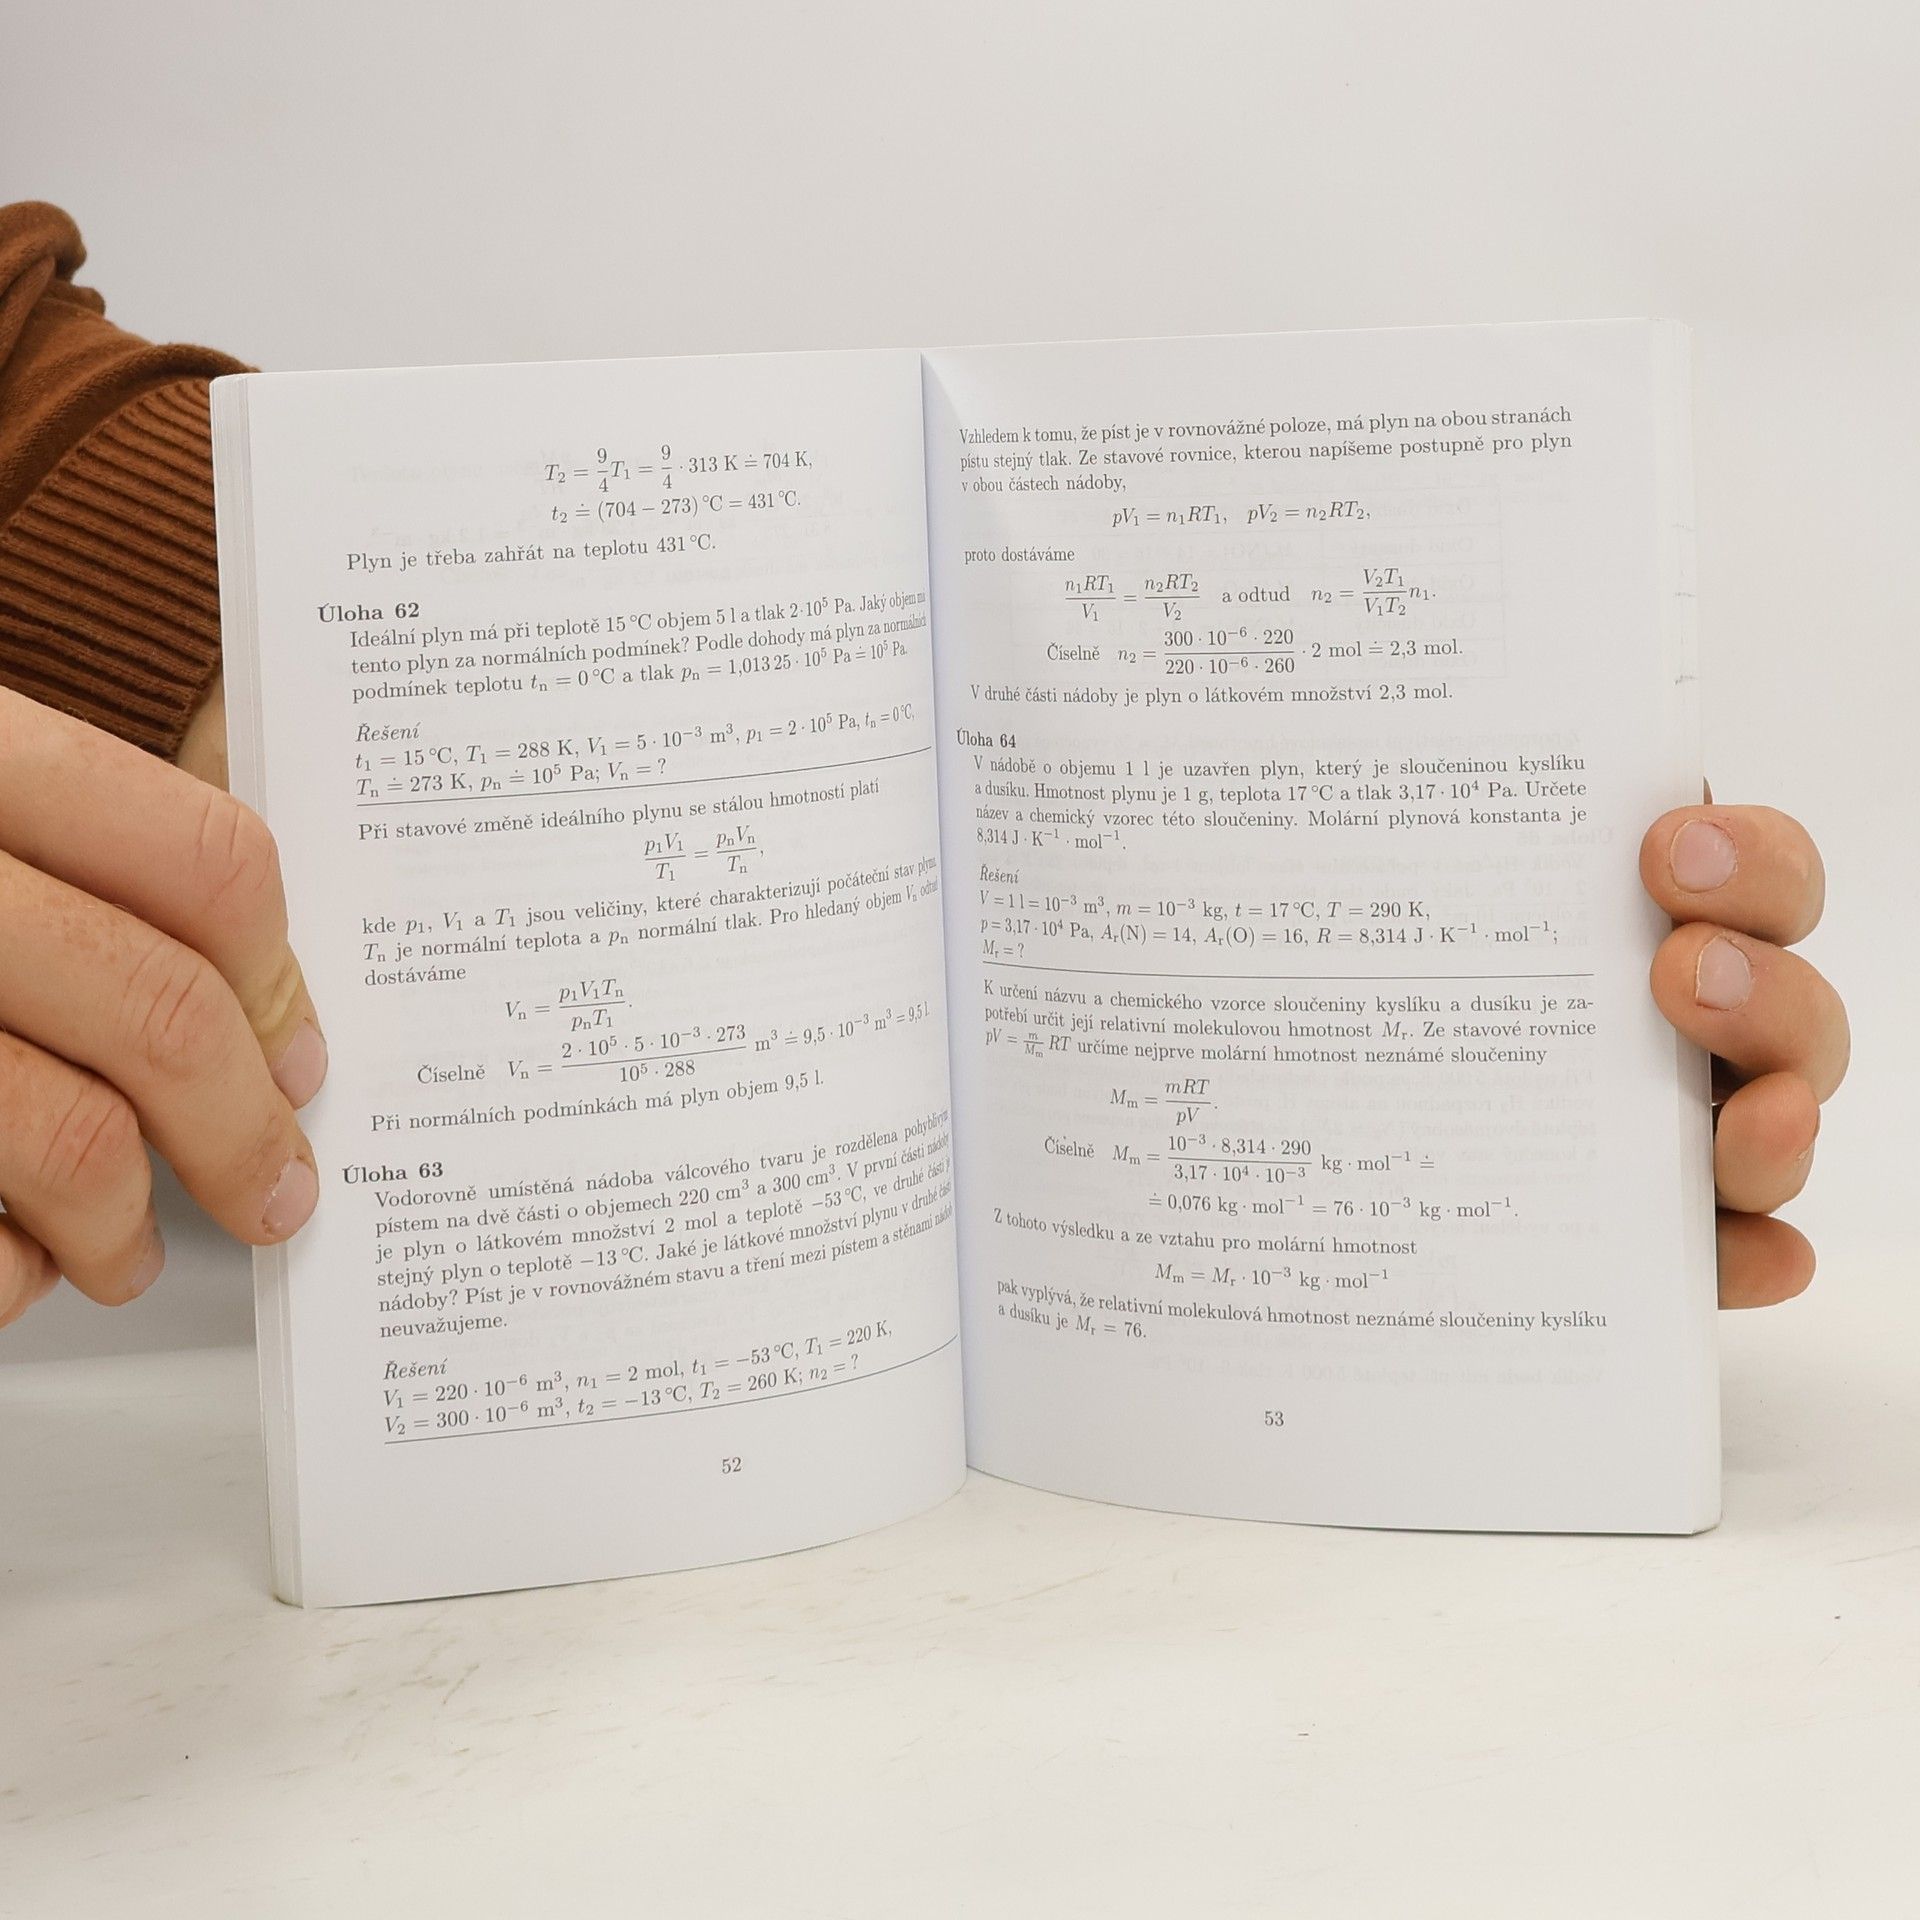 T₂ = 9/4 T₁ = 9/4 · 313 K ≐ 704 K,
t₂ ≐ (704 − 273) °C = 431 °C.
Plyn je třeba zahřát na teplotu 431 °C.
Úloha 62
Ideální plyn má při teplotě 15 °C objem 5 l a tlak 2·10⁵ Pa. Jaký objem má
tento plyn za normálních podmínek? Podle dohody má plyn za normálních
podmínek teplotu tₙ = 0 °C a tlak pₙ = 1,013 25 · 10⁵ Pa ≐ 10⁵ Pa.
Řešení
t₁ = 15 °C, T₁ = 288 K, V₁ = 5 · 10⁻³ m³, p₁ = 2 · 10⁵ Pa, tₙ = 0 °C,
Tₙ ≐ 273 K, pₙ ≐ 10⁵ Pa; Vₙ = ?
Při stavové změně ideálního plynu se stálou hmotností platí
p₁V₁/T₁ = pₙVₙ/Tₙ,
kde p₁, V₁ a T₁ jsou veličiny, které charakterizují počáteční stav plynu,
Tₙ je normální teplota a pₙ normální tlak. Pro hledaný objem Vₙ odtud
dostáváme
Vₙ = p₁V₁Tₙ/pₙT₁.
Číselně Vₙ = 2 · 10⁵ · 5 · 10⁻³ · 273/10⁵ · 288 m³ ≐ 9,5 · 10⁻³ m³ = 9,5 l.
Při normálních podmínkách má plyn objem 9,5 l.
Úloha 63
Vodorovně umístěná nádoba válcového tvaru je rozdělena pohyblivým
pístem na dvě části o objemech 220 cm³ a 300 cm³. V první části nádoby
je plyn o látkovém množství 2 mol a teplotě −53 °C, ve druhé části je
stejný plyn o teplotě −13 °C. Jaké je látkové množství plynu v druhé části
nádoby? Píst je v rovnovážném stavu a tření mezi pístem a stěnami nádoby
neuvažujeme.
Řešení
V₁ = 220 · 10⁻⁶ m³, n₁ = 2 mol, t₁ = −53 °C, T₁ = 220 K,
V₂ = 300 · 10⁻⁶ m³, t₂ = −13 °C, T₂ = 260 K; n₂ = ?
52
Vzhledem k tomu, že píst je v rovnovážné poloze, má plyn na obou stranách
pístu stejný tlak. Ze stavové rovnice, kterou napíšeme postupně pro plyn
v obou částech nádoby,
pV₁ = n₁RT₁, pV₂ = n₂RT₂,
proto dostáváme
n₁RT₁/V₁ = n₂RT₂/V₂ a odtud n₂ = V₂T₁/V₁T₂ n₁.
Číselně n₂ = 300 · 10⁻⁶ · 220/220 · 10⁻⁶ · 260 · 2 mol ≐ 2,3 mol.
V druhé části nádoby je plyn o látkovém množství 2,3 mol.
Úloha 64
V nádobě o objemu 1 l je uzavřen plyn, který je sloučeninou kyslíku
a dusíku. Hmotnost plynu je 1 g, teplota 17 °C a tlak 3,17 · 10⁴ Pa. Určete
název a chemický vzorec této sloučeniny. Molární plynová konstanta je
8,314 J · K⁻¹ · mol⁻¹.
Řešení
V = 1 l = 10⁻³ m³, m = 10⁻³ kg, t = 17 °C, T = 290 K,
p = 3,17 · 10⁴ Pa, Aᵣ(N) = 14, Aᵣ(O) = 16, R = 8,314 J · K⁻¹ · mol⁻¹;
Mᵣ = ?
K určení názvu a chemického vzorce sloučeniny kyslíku a dusíku je za-
potřebí určit její relativní molekulovou hmotnost Mᵣ. Ze stavové rovnice
pV = m/Mₘ RT určíme nejprve molární hmotnost neznámé sloučeniny
Mₘ = mRT/pV.
Číselně Mₘ = 10⁻³ · 8,314 · 290/3,17 · 10⁴ · 10⁻³ kg · mol⁻¹ ≐
≐ 0,076 kg · mol⁻¹ = 76 · 10⁻³ kg · mol⁻¹.
Z tohoto výsledku a ze vztahu pro molární hmotnost
Mₘ = Mᵣ · 10⁻³ kg · mol⁻¹
pak vyplývá, že relativní molekulová hmotnost neznámé sloučeniny kyslíku
a dusíku je Mᵣ = 76.
53